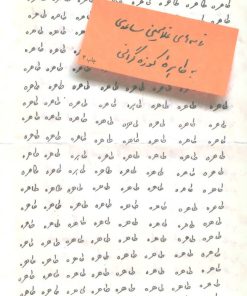 نامه‌های غلامحسین ساعدی
به طاهره کوزه‌گرانی
طاهره طاهره
طاهره طاهره طاهره طاهره طاهره
طاهره طاهره طاهره طاهره طاهره طاهره طاهره طاهره
طاهره طاهره طاهره طاهره طاهره طاهره طاهره طاهره
طاهره طاهره طاهره طاهره طاهره طاهره طاهره طاهره
طاهره طاهره طاهره طاهره طاهره طاهره طاهره طاهره
طاهره طاهره طاهره طاهره طاهره طاهره طاهره طاهره
طاهره طاهره طاهره طاهره طاهره طاهره طاهره طاهره
طاهره طاهره طاهره طاهره طاهره طاهره طاهره طاهره
طاهره طاهره طاهره طاهره طاهره طاهره طاهره طاهره
طاهره طاهره طاهره طاهره طاهره طاهره طاهره طاهره
طاهره طاهره طاهره طاهره طاهره طاهره طاهره طاهره
طاهره طاهره طاهره طاهره طاهره طاهره طاهره طاهره
طاهره طاهره طاهره طاهره طاهره طاهره طاهره طاهره